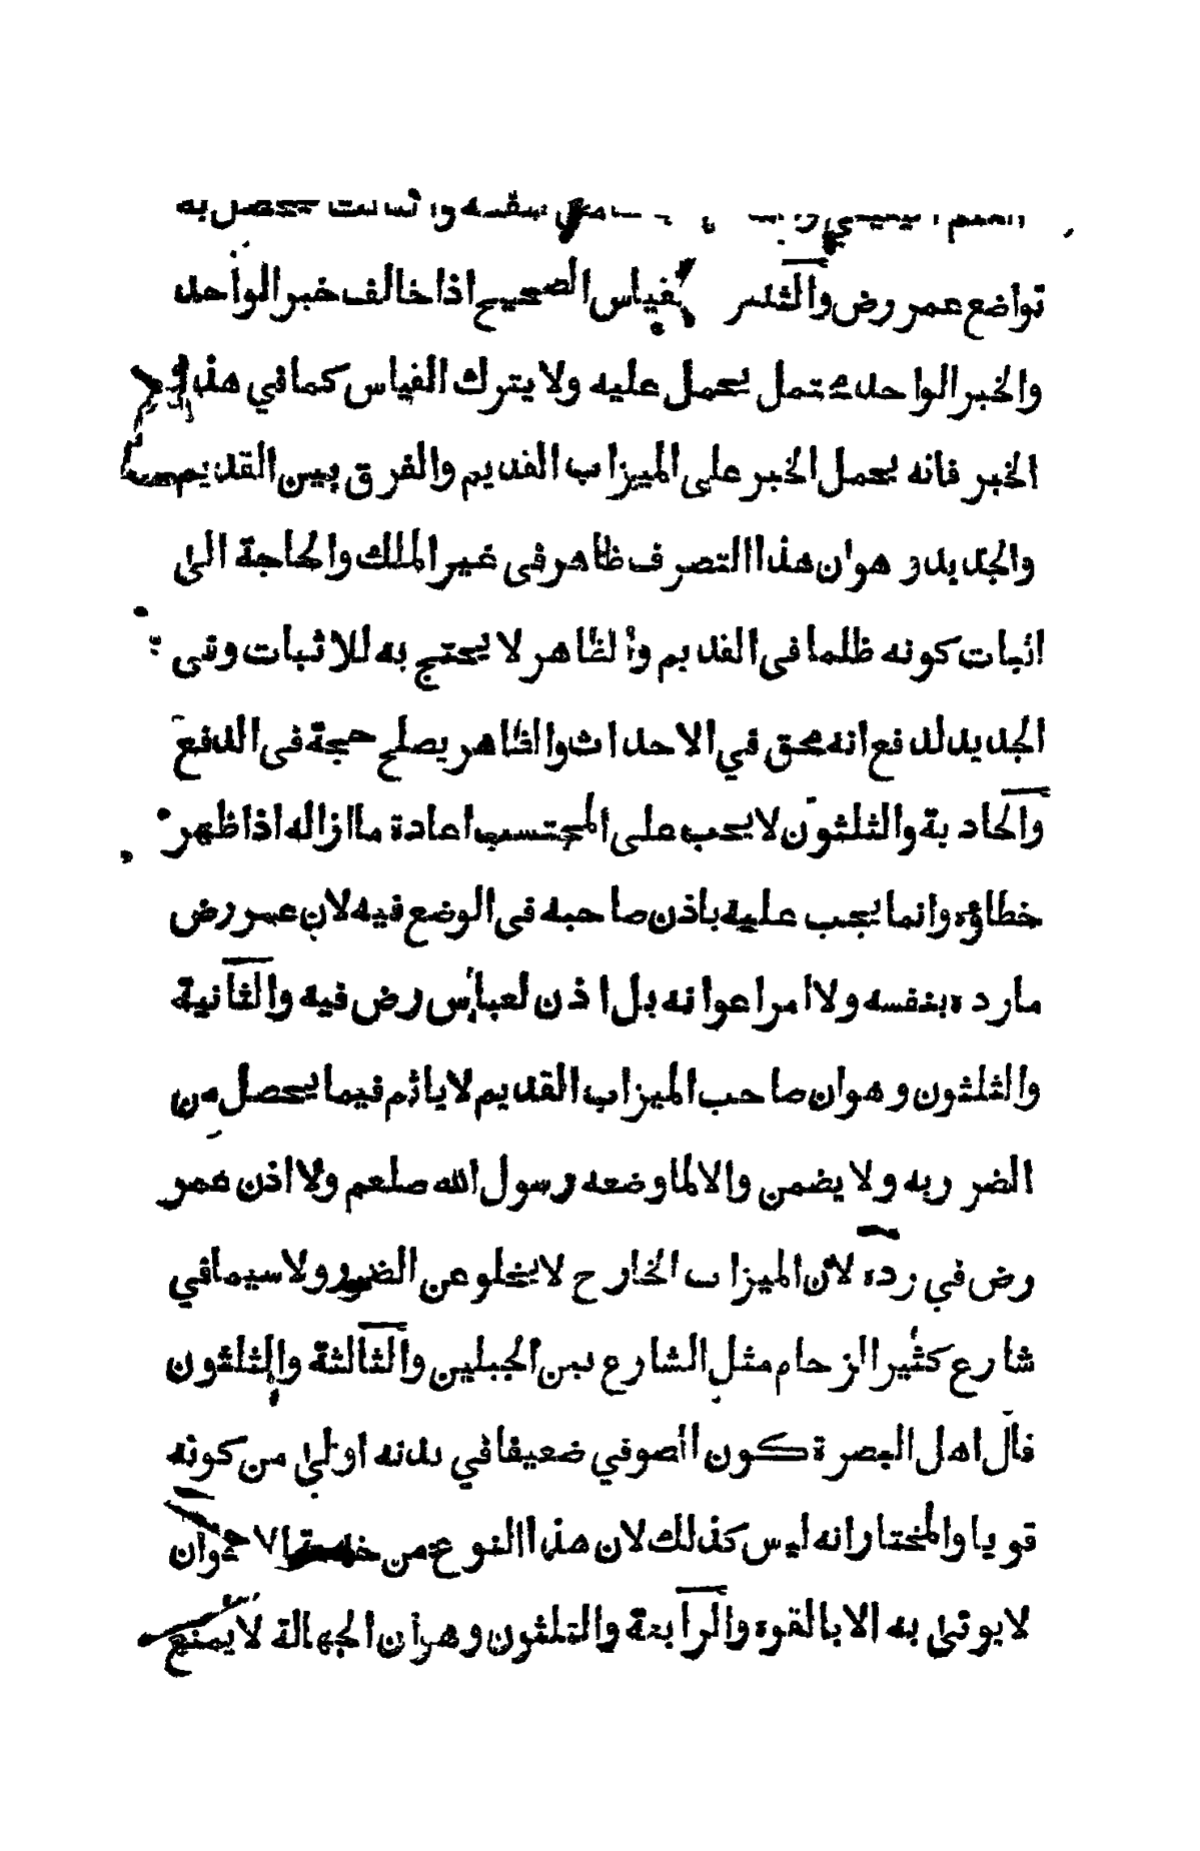 بنفسه والثالث يحصل به
تواضع عمر رض والثلثين القياس الصحيح اذا خالف خبر الواحد
والخبر الواحد محتمل يحمل عليه ولا يترك القياس كما في هذا
الخبر فانه يحمل الخبر على الميزاب القديم والفرق بين القديم
والجديد هو ان هذا التصرف ظاهر في غير الملك والحاجة الى
اثبات كونه ظلما في القديم والظاهر لا يحتج به للاثبات وفي
الجديد لدفع انه محق في الاحداث والظاهر يصلح حجة في الدفع
والحادية والثلثون لا يجب على المحتسب اعادة ما ازاله اذا ظهر
خطاؤه وانما يجب عليه باذن صاحبه في الوضع فيه لان عمر رض
ما رده بنفسه ولا امر اعوانه بل اذن لعباس رض فيه والثانية
والثلثون وهو ان صاحب الميزاب القديم لا ياثم فيما يحصل من
الضرر به ولا يضمن والا لما وضعه رسول الله صلعم ولا اذن عمر
رض في رده لان الميزاب الخارج لا يخلو عن الضرر ولا سيما في
شارع كثير الزحام مثل الشارع بين الجبلين والثالثة والثلثون
قال اهل البصرة كون الصوفي ضعيفا في بدنه اولى من كونه
قويا والمختار انه ليس كذلك لان هذا النوع من خدمة الاخوان
لا يوتى به الا بالقوه والرابعة والثلثون وهو ان الجهالة لا يمنع